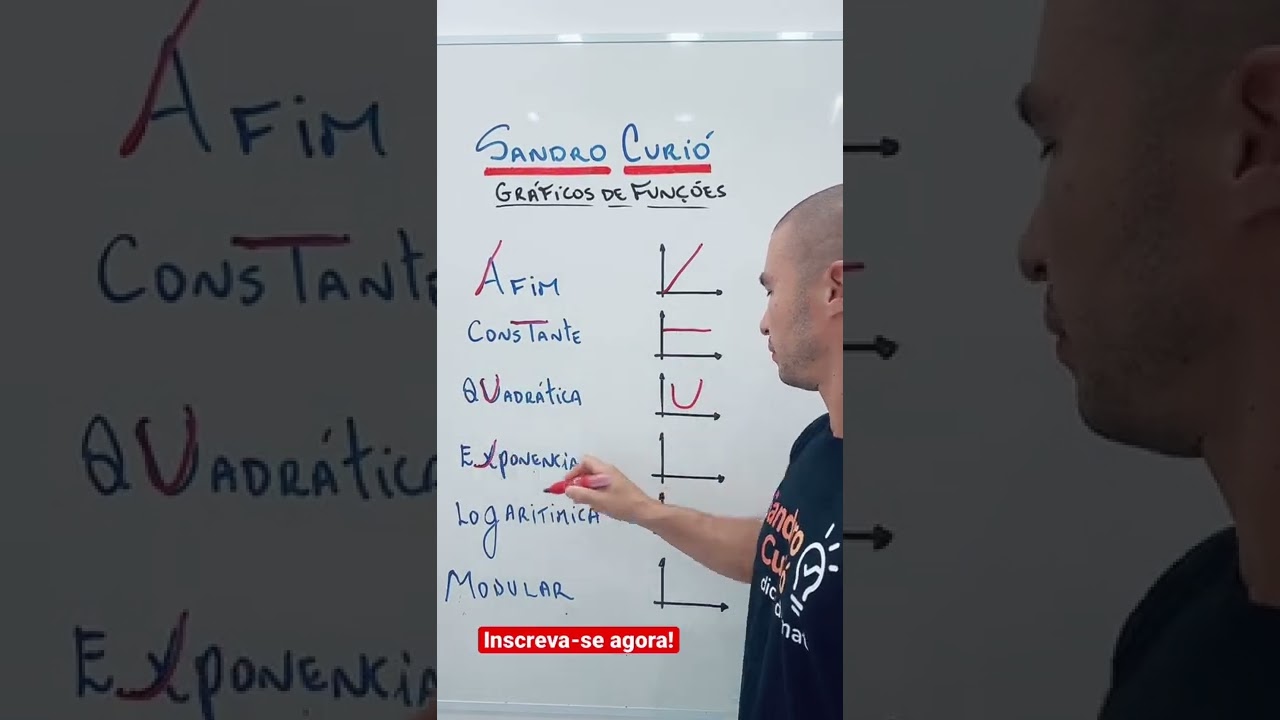 SANDRO CURIÓ
GRÁFICOS DE FUNÇÕES
AFIM
CONSTANTE
QUADRÁTICA
EXPONENCIA
LOGARITIMICA
MODULAR
Inscreva-se agora!
Sandro
Curió
AFIM
CONSTANTE
QUADRÁTICA
EXPONENCIA